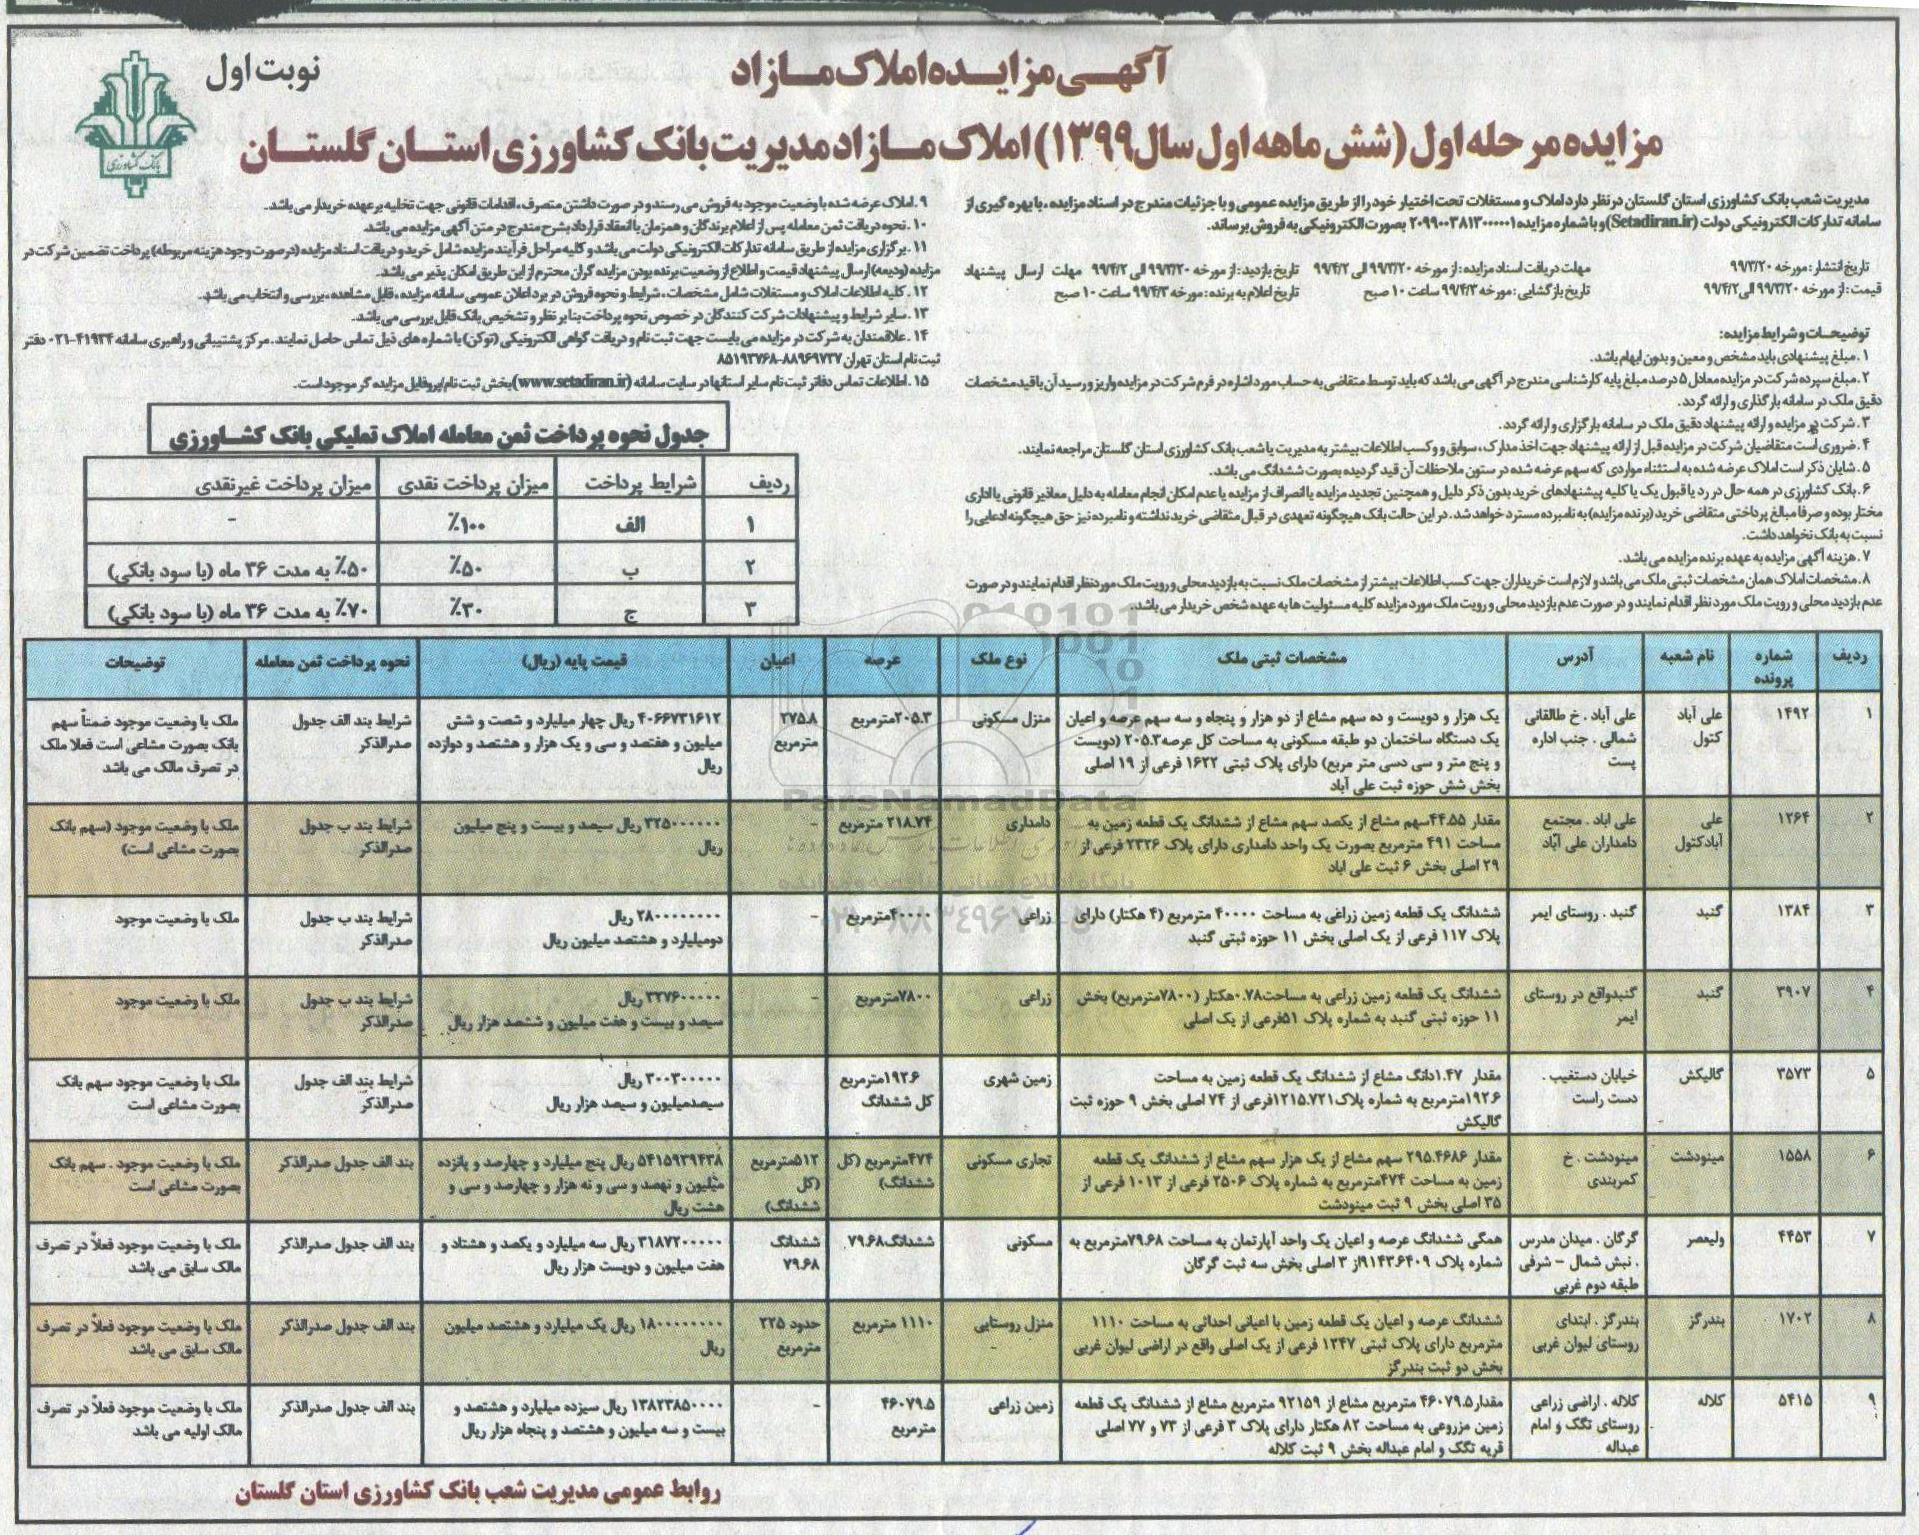 آگهی مزایده املاک مازاد
نوبت اول
بانک کشاورزی
مزایده مرحله اول (شش ماهه اول سال ۱۳۹۹) املاک مازاد مدیریت بانک کشاورزی استان گلستان
مدیریت شعب بانک کشاورزی استان گلستان در نظر دارد املاک و مستغلات تحت اختیار خود را از طریق مزایده عمومی و با جزئیات مندرج در اسناد مزایده، با بهره گیری از
سامانه تدارکات الکترونیکی دولت (Setadiran.ir) و با شماره مزایده ۲۰۹۹۰۰۳۸۱۳۰۰۰۰۰۱ بصورت الکترونیکی به فروش برساند.
تاریخ انتشار: مورخه ۹۹/۳/۲۰ مهلت دریافت اسناد مزایده: از مورخه ۹۹/۳/۲۰ الی ۹۹/۴/۲ تاریخ بازدید: از مورخه ۹۹/۳/۲۰ الی ۹۹/۴/۲ مهلت ارسال پیشنهاد
قیمت: از مورخه ۹۹/۳/۲۰ الی ۹۹/۴/۲ تاریخ بازگشایی: مورخه ۹۹/۴/۳ ساعت ۱۰ صبح تاریخ اعلام به برنده: مورخه ۹۹/۴/۳ ساعت ۱۰ صبح
توضیحات و شرایط مزایده:
۱. مبلغ پیشنهادی باید مشخص و معین و بدون ابهام باشد.
۲. مبلغ سپرده شرکت در مزایده معادل ۵ درصد مبلغ پایه کارشناسی مندرج در آگهی می باشد که باید توسط متقاضی به حساب مورد اشاره در فرم شرکت در مزایده واریز و رسید آن با قید مشخصات
دقیق ملک در سامانه بارگذاری و ارائه گردد.
۳. شرکت در مزایده و ارائه پیشنهاد دقیق ملک در سامانه بارگزاری و ارائه گردد.
۴. ضروری است متقاضیان شرکت در مزایده قبل از ارائه پیشنهاد جهت اخذ مدارک، سوابق و وکسب اطلاعات بیشتر به مدیریت یا شعب بانک کشاورزی استان گلستان مراجعه نمایند.
۵. شایان ذکر است املاک عرضه شده به استثناء مواردی که سهم عرضه شده در ستون ملاحظات آن قید گردیده بصورت ششدانگ می باشد.
۶. بانک کشاورزی در همه حال در رد یا قبول یک یا کلیه پیشنهادهای خرید بدون ذکر دلیل و همچنین تجدید مزایده یا انصراف از مزایده یا عدم امکان انجام معامله به دلیل معاذیر قانونی یا اداری
مختار بوده و صرفا مبالغ پرداختی متقاضی خرید (برنده مزایده) به نامبرده مسترد خواهد شد. در این حالت بانک هیچگونه تعهدی در قبال متقاضی خرید نداشته و نامبرده نیز حق هیچگونه ادعایی را
نسبت به بانک نخواهد داشت.
۷. هزینه آگهی مزایده به عهده برنده مزایده می باشد.
۸. مشخصات املاک همان مشخصات ثبتی ملک می باشد و لازم است خریداران جهت کسب اطلاعات بیشتر از مشخصات ملک نسبت به بازدید محلی و رویت ملک مورد نظر اقدام نمایند و در صورت
عدم بازدید محلی و رویت ملک مورد نظر اقدام نمایند و در صورت عدم بازدید محلی و رویت ملک مورد مزایده کلیه مسئولیت ها به عهده شخص خریدار می باشد.
۹. املاک عرضه شده با وضعیت موجود به فروش می رسند و در صورت داشتن متصرف، اقدامات قانونی جهت تخلیه بر عهده خریدار می باشد.
۱۰. نحوه دریافت ثمن معامله پس از اعلام برندگان و همزمان با انعقاد قرارداد بشرح مندرج در متن آگهی مزایده می باشد.
۱۱. برگزاری مزایده از طریق سامانه تدارکات الکترونیکی دولت می باشد و کلیه مراحل فرآیند مزایده شامل خرید و دریافت اسناد مزایده (در صورت وجود هزینه مربوطه) پرداخت تضمین شرکت در
مزایده (ودیعه) ارسال پیشنهاد قیمت و اطلاع از وضعیت برنده بودن مزایده گران محترم از این طریق امکان پذیر می باشد.
۱۲. کلیه اطلاعات املاک و مستغلات شامل مشخصات، شرایط و نحوه فروش در برد اعلان عمومی سامانه مزایده، قابل مشاهده، بررسی و انتخاب می باشد.
۱۳. سایر شرایط و پیشنهادات شرکت کنندگان در خصوص نحوه پرداخت بنا بر نظر و تشخیص بانک قابل بررسی می باشد.
۱۴. علاقمندان به شرکت در مزایده می بایست جهت ثبت نام و دریافت گواهی الکترونیکی (توکن) با شماره های ذیل تماس حاصل نمایند. مرکز پشتیبانی و راهبری سامانه ۴۱۹۳۴-۰۲۱ دفتر
ثبت نام استان تهران ۸۸۹۶۹۷۳۷-۸۵۱۹۳۷۶۸
۱۵. اطلاعات تماس دفاتر ثبت نام سایر استانها در سایت سامانه (www.setadiran.ir) بخش ثبت نام/پروفایل مزایده گر موجود است.
جدول نحوه پرداخت ثمن معامله املاک تملیکی بانک کشاورزی
ردیف شرایط پرداخت میزان پرداخت نقدی میزان پرداخت غیرنقدی
۱ الف ۱۰۰٪ -
۲ ب ۵۰٪ ۵۰٪ به مدت ۳۶ ماه (با سود بانکی)
۳ ج ۳۰٪ ۷۰٪ به مدت ۳۶ ماه (با سود بانکی)
ردیف شماره پرونده نام شعبه آدرس مشخصات ثبتی ملک نوع ملک عرصه اعیان قیمت پایه (ریال) نحوه پرداخت ثمن معامله توضیحات
۱ ۱۴۹۲ علی آباد کتول علی آباد. خ طالقانی شمالی. جنب اداره پست
یک هزار و دویست و ده سهم مشاع از دو هزار و پنجاه و سه سهم عرصه و اعیان
یک دستگاه ساختمان دو طبقه مسکونی به مساحت کل عرصه ۲۰۵.۳ (دویست
و پنج متر و سی دسی متر مربع) دارای پلاک ثبتی ۱۶۲۲ فرعی از ۱۹ اصلی
بخش شش حوزه ثبت علی آباد
منزل مسکونی ۲۰۵.۳مترمربع ۲۷۵.۸ مترمربع
۴۰۶۶۷۳۱۶۱۲ ریال چهار میلیارد و شصت و شش
میلیون و هفتصد و سی و یک هزار و هشتصد و دوازده
ریال
شرایط بند الف جدول صدرالذکر
ملک با وضعیت موجود ضمناً سهم
بانک بصورت مشاعی است فعلا ملک
در تصرف مالک می باشد
۲ ۱۲۶۴ علی آبادکتول علی اباد. مجتمع دامداران علی آباد
مقدار ۴۴.۵۵سهم مشاع از یکصد سهم مشاع از ششدانگ یک قطعه زمین به
مساحت ۴۹۱ مترمربع بصورت یک واحد دامداری دارای پلاک ۲۳۲۶ فرعی از
۲۹ اصلی بخش ۶ ثبت علی اباد
دامداری ۲۱۸.۷۴ مترمربع -
۳۲۵۰۰۰۰۰۰ ریال سیصد و بیست و پنج میلیون
ریال
شرایط بند ب جدول صدرالذکر
ملک با وضعیت موجود (سهم بانک
بصورت مشاعی است)
۳ ۱۳۸۴ گنبد گنبد. روستای ایمر
ششدانگ یک قطعه زمین زراغی به مساحت ۴۰۰۰۰ مترمربع (۴ هکتار) دارای
پلاک ۱۱۷ فرعی از یک اصلی بخش ۱۱ حوزه ثبتی گنبد
زراعی ۴۰۰۰۰مترمربع -
۲۸۰۰۰۰۰۰۰۰ ریال
دومیلیارد و هشتصد میلیون ریال
شرایط بند ب جدول صدرالذکر
ملک با وضعیت موجود
۴ ۳۹۰۷ گنبد گنبدواقع در روستای ایمر
ششدانگ یک قطعه زمین زراعی به مساحت۰.۷۸هکتار (۷۸۰۰مترمربع) بخش
۱۱ حوزه ثبتی گنبد به شماره پلاک ۵۱فرعی از یک اصلی
زراعی ۷۸۰۰مترمربع -
۳۲۷۶۰۰۰۰۰ ریال
سیصد و بیست و هفت میلیون و ششصد هزار ریال
شرایط بند ب جدول صدرالذکر
ملک با وضعیت موجود
۵ ۳۵۷۳ گالیکش خیابان دستغیب. دست راست
مقدار ۱.۴۷دانگ مشاع از ششدانگ یک قطعه زمین به مساحت
۱۹۲.۶مترمربع به شماره پلاک۱۲۱۵.۷۲۱فرعی از ۷۴ اصلی بخش ۹ حوزه ثبت
گالیکش
زمین شهری ۱۹۲.۶مترمربع کل ششدانگ
۳۰۰۳۰۰۰۰۰ ریال
سیصدمیلیون و سیصد هزار ریال
شرایط بند الف جدول صدرالذکر
ملک با وضعیت موجود سهم بانک
بصورت مشاعی است
۶ ۱۵۵۸ مینودشت مینودشت. خ کمربندی
مقدار ۲۹۵.۴۶۸۶ سهم مشاع از یک هزار سهم مشاع از ششدانگ یک قطعه
زمین به مساحت ۴۷۴مترمربع به شماره پلاک ۲۵۰۶ فرعی از ۱۰۱۳ فرعی از
۳۵ اصلی بخش ۹ ثبت مینودشت
تجاری مسکونی ۴۷۴مترمربع (کل ششدانگ) ۵۱۲مترمربع (کل ششدانگ)
۵۴۱۵۹۳۹۴۳۸ ریال پنج میلیارد و چهارصد و پانزده
میلیون و نهصد و سی و نه هزار و چهارصد و سی و
هشت ریال
بند الف جدول صدرالذکر
ملک با وضعیت موجود. سهم بانک
بصورت مشاعی است
۷ ۴۴۵۳ ولیعصر گرگان. میدان مدرس. نبش شمال – شرقی طبقه دوم غربی
همگی ششدانگ عرصه و اعیان یک واحد آپارتمان به مساحت ۷۹.۶۸مترمربع به
شماره پلاک ۹۱۴۳.۶۴۰۹از ۳ اصلی بخش سه ثبت گرگان
مسکونی ششدانگ۷۹.۶۸ ششدانگ ۷۹.۶۸
۳۱۸۷۲۰۰۰۰۰ ریال سه میلیارد و یکصد و هشتاد و
هفت میلیون و دویست هزار ریال
بند الف جدول صدرالذکر
ملک با وضعیت موجود فعلاً در تصرف
مالک سابق می باشد
۸ ۱۷۰۲ بندرگز بندرگز. ابتدای روستای لیوان غربی
ششدانگ عرصه و اعیان یک قطعه زمین با اعیانی احداثی به مساحت ۱۱۱۰
مترمربع دارای پلاک ثبتی ۱۲۴۷ فرعی از یک اصلی واقع در اراضی لیوان غربی
بخش دو ثبت بندرگز
منزل روستایی ۱۱۱۰ مترمربع حدود ۲۲۵ مترمربع
۱۸۰۰۰۰۰۰۰۰ ریال یک میلیارد و هشتصد میلیون
ریال
بند الف جدول صدرالذکر
ملک با وضعیت موجود فعلاً در تصرف
مالک سابق می باشد
۹ ۵۴۱۵ کلاله کلاله. اراضی زراعی روستای تگک و امام عبداله
مقدار۴۶۰۷۹.۵ مترمربع مشاع از ۹۲۱۵۹ مترمربع مشاع از ششدانگ یک قطعه
زمین مزروعی به مساحت ۸۲ هکتار دارای پلاک ۳ فرعی از ۷۳ و ۷۷ اصلی
قریه تگک و امام عبداله بخش ۹ ثبت کلاله
زمین زراعی ۴۶۰۷۹.۵ مترمربع -
۱۳۸۲۳۸۵۰۰۰۰ ریال سیزده میلیارد و هشتصد و
بیست و سه میلیون و هشتصد و پنجاه هزار ریال
بند الف جدول صدرالذکر
ملک با وضعیت موجود فعلاً در تصرف
مالک اولیه می باشد
روابط عمومی مدیریت شعب بانک کشاورزی استان گلستان
ParsNamadData